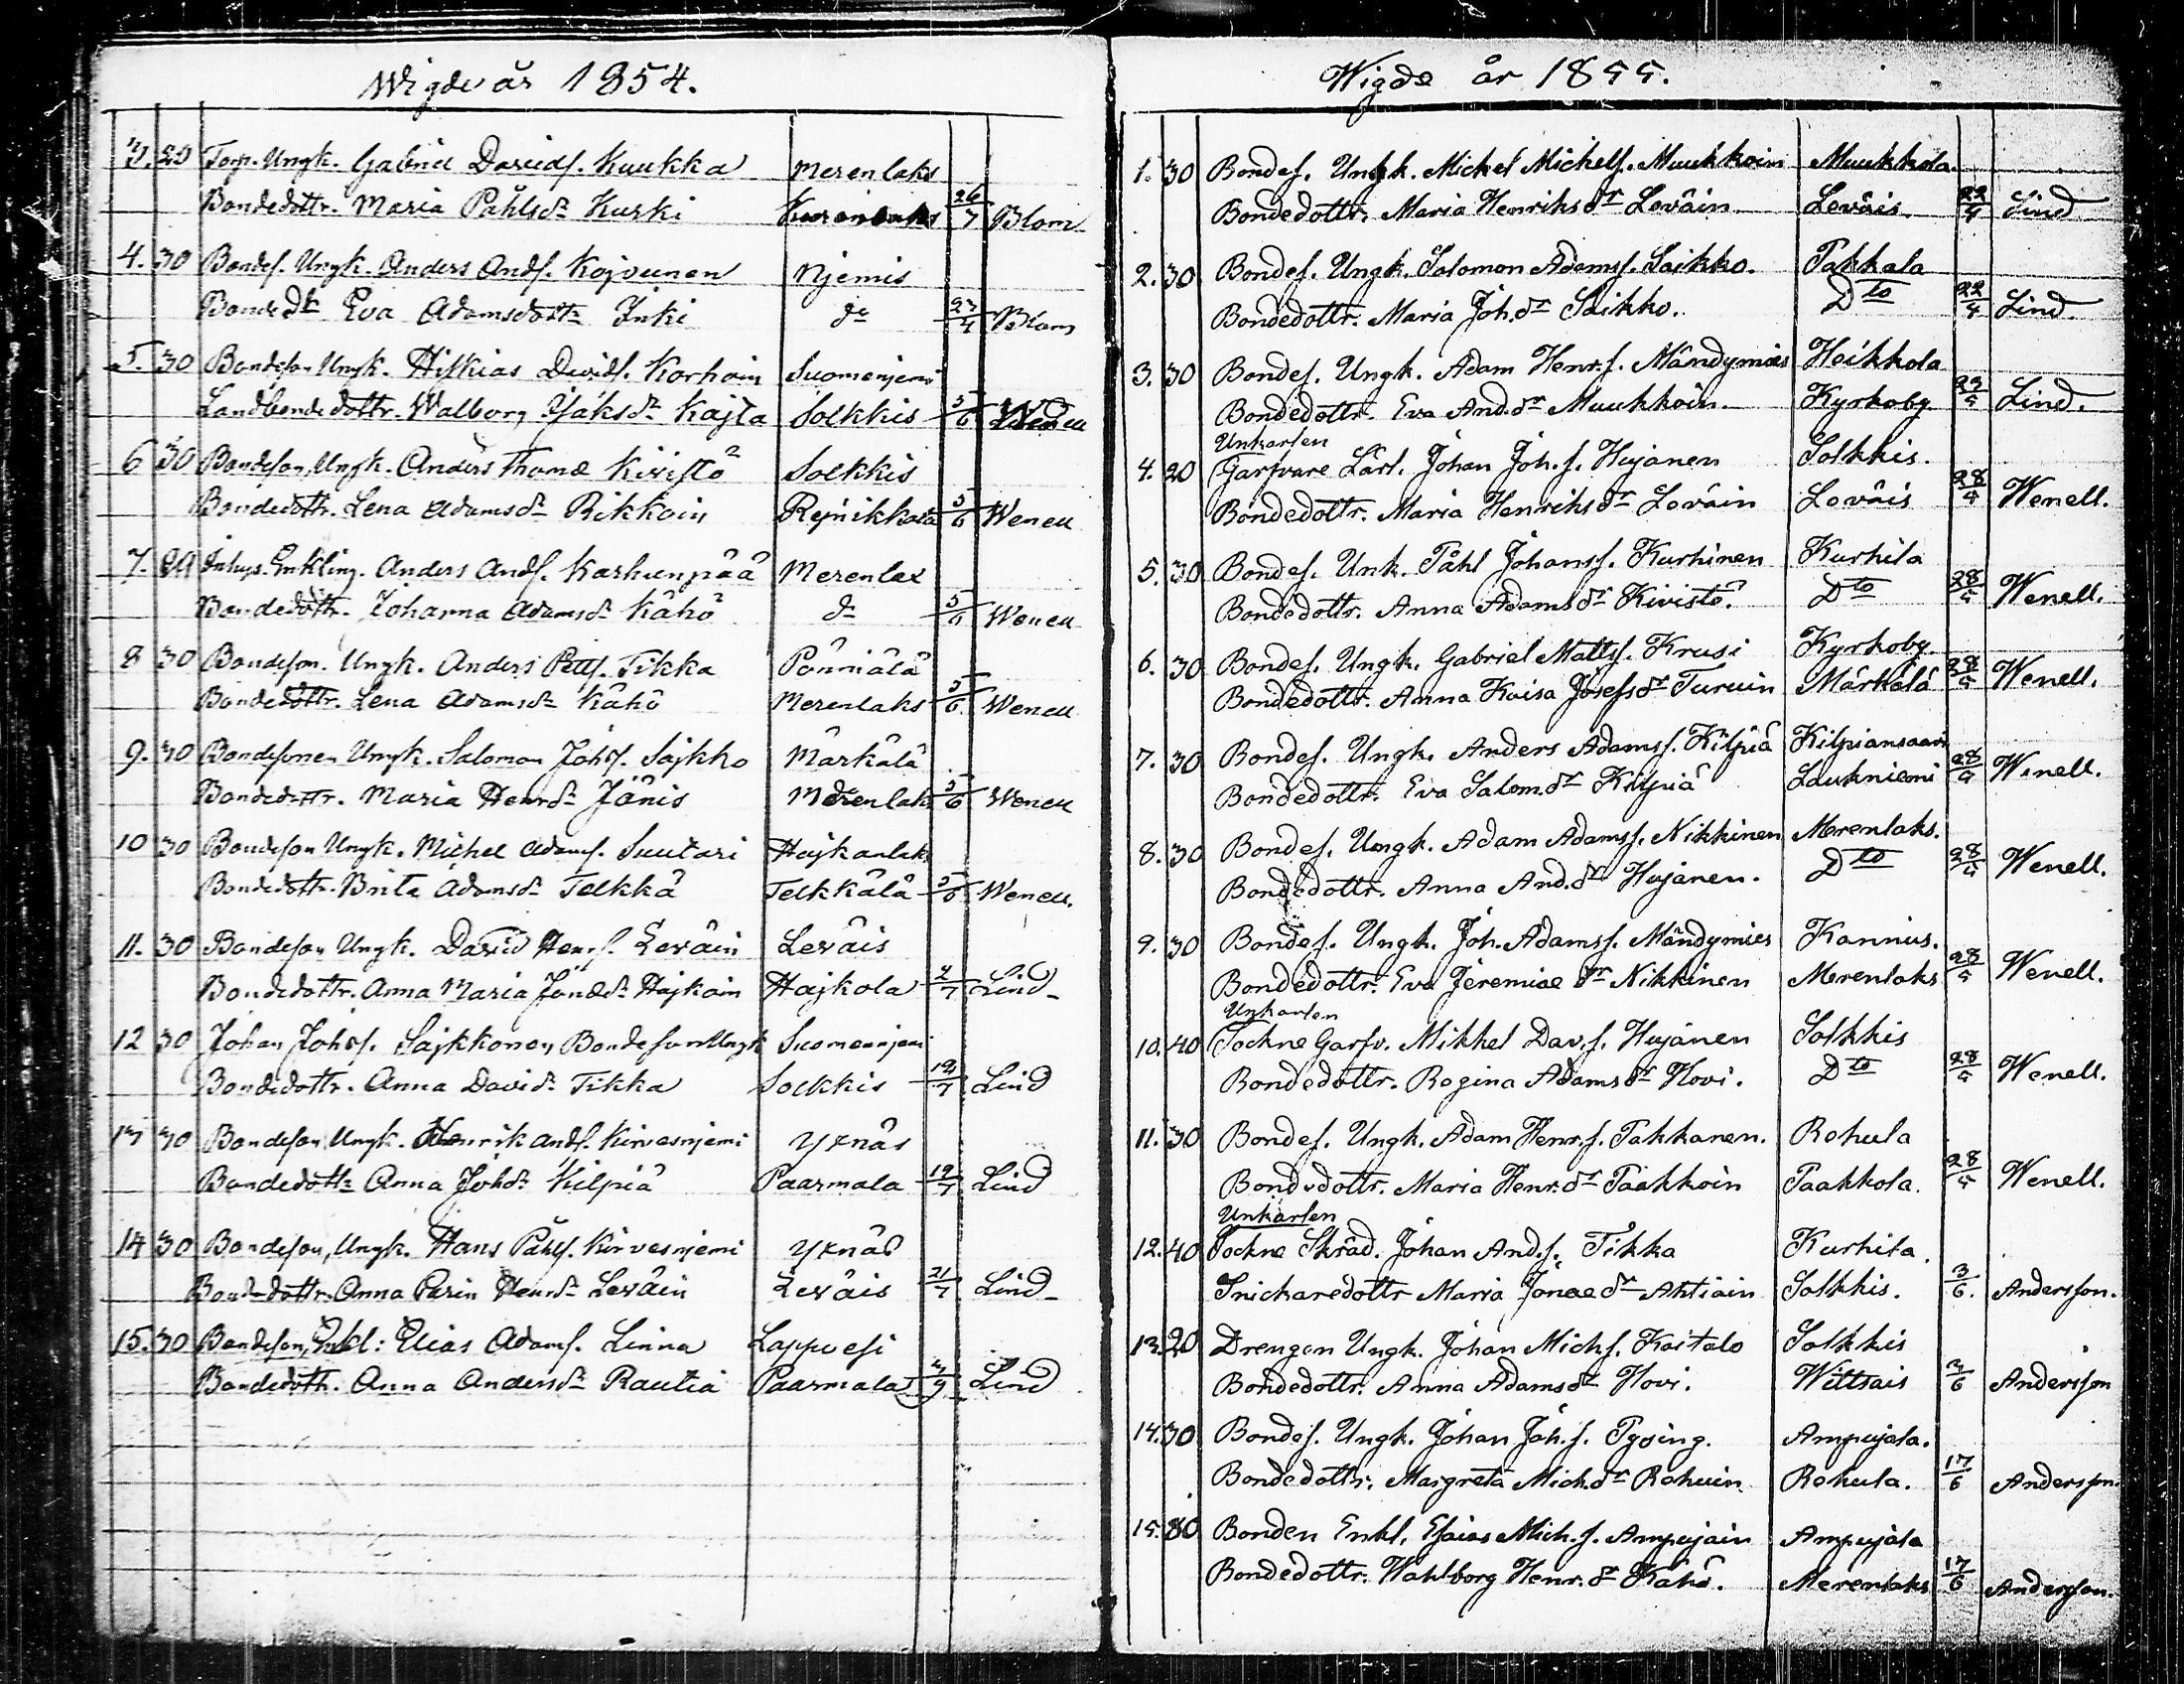 Wigde år 1854.
3. 20 Torp. Ungk. Gabriel Davids. Kuukka Merenlaks
Bondedottr. Maria Påhlsdr Kurki Kurenlaks 26/7 Blom
4. 30 Bondes. Ungk. Anders Ands. Kojvunen Njemis
Bondedtr Eva Adamsdottr Inki do Blom
5. 30 Bondeson Ungk. Hiskias Davids. Korhoin Suomenjemi
Landbondedottr. Walborg Jaksdr Kajta Solkkis 5/6 Wenell
6 30 Bondeson, Ungk. Anders Thomæ Kivistö Solkkis
Bondedottr. Lena Adamsdr Rikkoin Rejnikkala 5/6 Wenell
7. Inhys. Enkling. Anders Ands. Karhunpää Merenlax
Bondedottr. Johanna Adamsdr Kähö do 5/6 Wenell
8 30 Bondeson. Ungk. Anders Petts. Tikka Pönniälä
Bondedottr. Lena Adamsdr Kähö Merenlaks 5/6 Wenell
9. 30 Bondesonen Ungk. Salomon Johs. Sajkko Märkälä
Bondedottr. Maria Henrdr Jänis Merenlaks 5/6 Wenell
10 30 Bondeson Ungk. Michel Adams. Suutari Hajkanlaks
Bondedottr. Brita Adamsdr Telkkä Telkkälä 5/6 Wenell.
11. 30 Bondeson Ungk. David Henrs. Leväin Leväis
Bondedottr. Anna Maria Jonædr Hajkoin Hajkola Lind
12 30 Johan Johs. Sajkkonen, Bondeson Ungk Suomenjemi
Bondedottr. Anna Davidr Tikka Solkkis 19/7 Lind
13 30 Bondeson, Ungk. Henrik Ands. Kirvesnjemi Yxnäs
Bondedottr Anna Johdr Kilpiä Paarmala 19/7 Lind
14 30 Bondeson, Ungk. Hans Påhls. Kirvesnjemi Yxnäs
Bondedottr. Anna Carin Henrdr Leväin Leväis 21/7 Lind
15. 30 Bondeson, Enkl: Elias Adams. Linna Lappvesi
Bondedottr. Anna Andersdr Rautia Paarmala Lind
Wigde år 1855.
1. 30 Bondes. Ungk. Michel Michels. Muukkoin Muukkola
Bondedottr. Maria Henriksdr Leväin Leväis 22/4 Lind
2. 30 Bondes. Ungk. Salomon Adamss. Saikko. Pakkala
Bondedottr. Maria Joh.dr Saikko. Dto 22/4 Lind.
3. 30 Bondes. Ungk. Adam Henr.s. Mändymies Heikkola
Bondedottr. Eva And.dr Muukkoin. Kyrkoby Lind.
Unkarlen
4. 20 Garfvare Lärl. Johan Joh.s. Hujanen Solkkis.
Bondedottr. Maria Henriksdr Leväin Leväis Wenell.
5. 30 Bondes. Unk. Påhl Johanss. Kurhinen Kurhila
Bondedottr. Anna Adamsdr Kivistö. Dto Wenell.
6. 30 Bondes. Ungk. Gabriel Matts. Krusi Kyrkoby.
Bondedottr. Anna Kaisa Josefsdr Turuin Märkälä Wenell.
7. 30 Bondes. Ungk. Anders Adamss. Kilpiä Kilpiansaari
Bondedottr. Eva Salom.dr Kilpiä Laukniemi Wenell.
8. 30 Bondes. Ungk. Adam Adamss. Nikkinen Merenlaks.
Bondedottr. Anna And.dr Hujanen. Dto Wenell.
9. 30 Bondes. Ungk. Joh. Adamss. Mändymies Kannus.
Bondedottr. Eva Jeremiae dr Nikkinen Merenlaks Wenell.
Unkarlen
10. 40 Sockne Garfv. Mikkel Dav.s. Hujanen Solkkis
Bondedottr. Regina Adamsdr Hovi. Dto Wenell.
11. 30 Bondes. Ungk. Adam Henr.s. Pakkanen. Rehula
Bondedottr. Maria Henr.dr Paakkoin Paakkola. Wenell.
Unkarlen
12. 40 Sockne Skräd. Johan And.s. Tikka Kurhila
Snickaredottr Maria Jonae dr Ahtiain Solkkis. 3/6. Andersson.
13. 20 Drengen Ungk. Johan Mich.s. Koitalo Solkkis
Bondedottr. Anna Adamsdr Hovi. Wittsais 3/6 Andersson
14. 30 Bondes. Ungk. Johan Joh.s. Pysing. Ampujala.
Bondedottr. Margreta Mich.dr Rehuin Rehula. 17/6 Andersson.
15. 80 Bonden Enkl. Esaias Mich.s. Ampujain Ampujala
Bondedottr. Wahlborg Henr.dr Kähö. Merenlaks 17/6 Andersson.